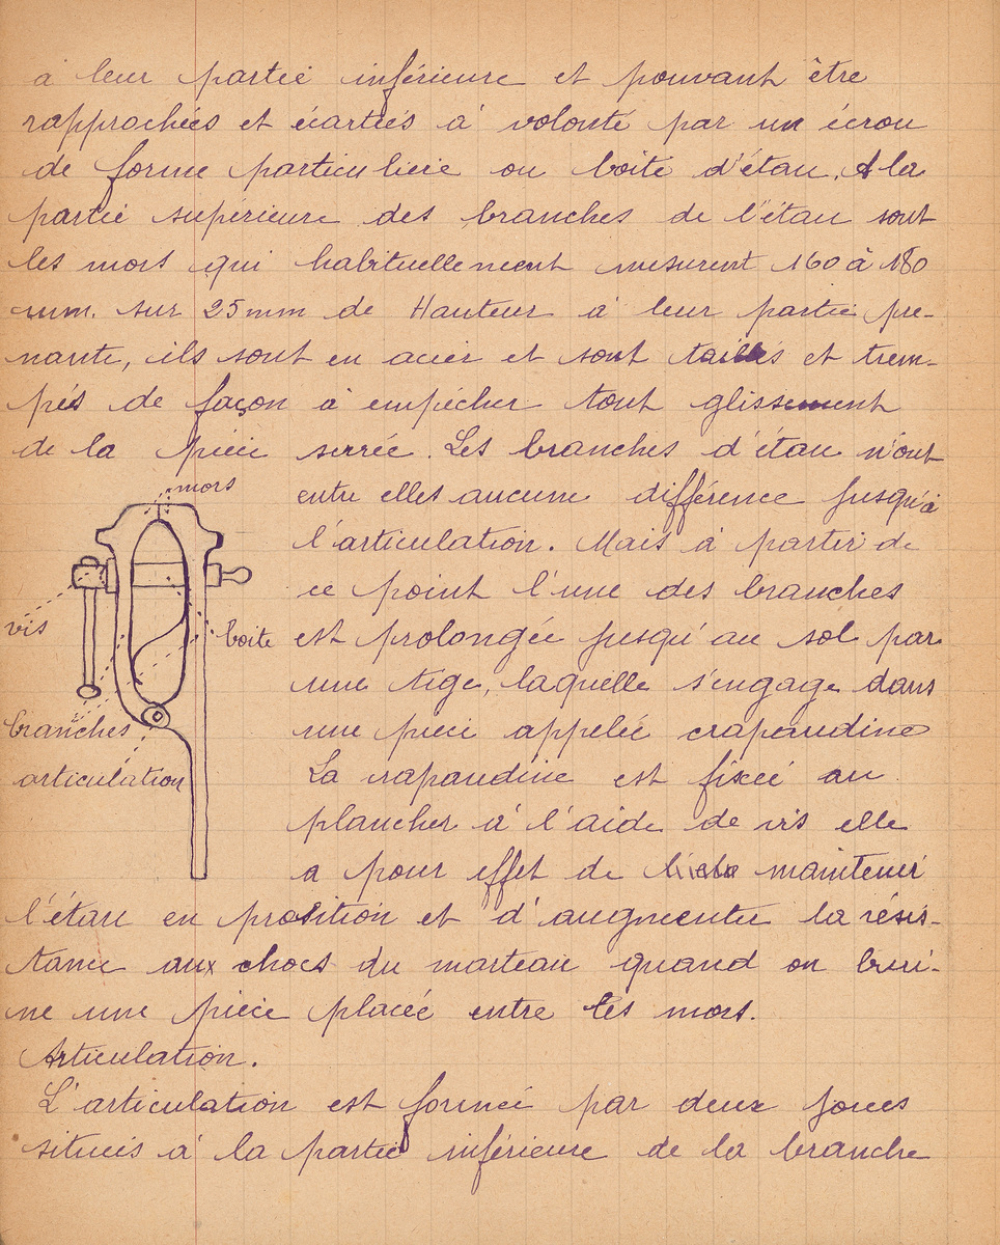 à leur partie inférieure et pouvant être
rapprochées et écartées à volonté par un écrou
de forme particulière ou boite d'étau. A la
partie supérieure des branches de l'étau sont
les mors qui habituellement mesurent 160 à 180
mm. sur 25mm de Hauteur à leur partie pre-
nante, ils sont en acier et sont taillés et trem-
pés de façon à empêcher tout glissement
de la pièce serrée. Les branches d'étau n'ont
mors
entre elles aucune différence jusqu'à
l'articulation. Mais à partir de
ce point l'une des branches
vis
boite
est prolongée jusqu'au sol par
une tige, laquelle s'engage dans
branches
une pièce appelée crapaudine
articulation
La crapaudine est fixée au
plancher à l'aide de vis elle
a pour effet de maintenir
l'étau en position et d'augmenter la résis-
tance aux chocs du marteau quand on buri-
ne une pièce placée entre les mors.
Articulation.
L'articulation est formée par deux joues
situées à la partie inférieure de la branche